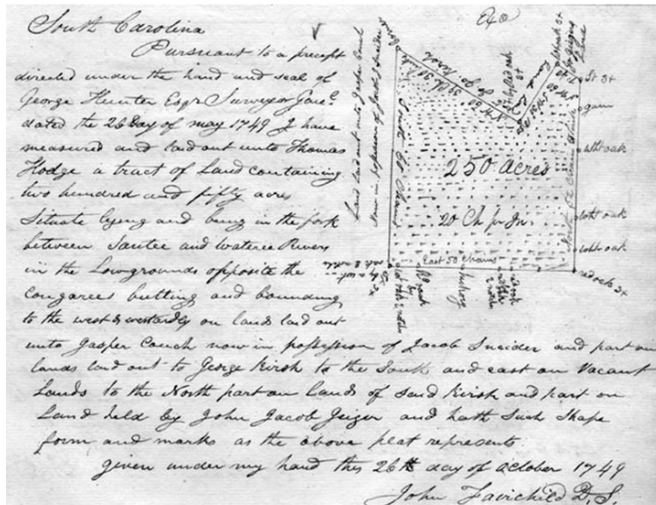 South Carolina
Pursuant to a precept
directed under the hand and seal of
George Hunter Esqr. Surveyor Genl.
dated the 26 Day of may 1749 I have
measured and laid out unto Thomas
Hodge a tract of Land containing
two hundred and fifty acre
Situate lying and being in the fork
between Santee and Wateree Rivers
in the Lowgrounds opposite the
Congarees butting and bounding
to the west & westardly on lands laid out
unto Jasper Couch now in possession of Jacob Sneider and part on
lands laid out to George Kirsh to the South and east on Vacant
Lands to the North part on Lands of said Kirsh and part on
Land held by John Jacob Geiger and hath Such Shape
form and marks as the above plat represents.
given under my hand this 26th day of october 1749
John Fairchild D. S.
Land laid out unto Jasper Couch
Now in possession of Jacob Sneider
250 acres
20 Ch pr In
East 50 Chains
St 3x
gum
wht oak
wht oak
wht oak
red oak 3x
hickory